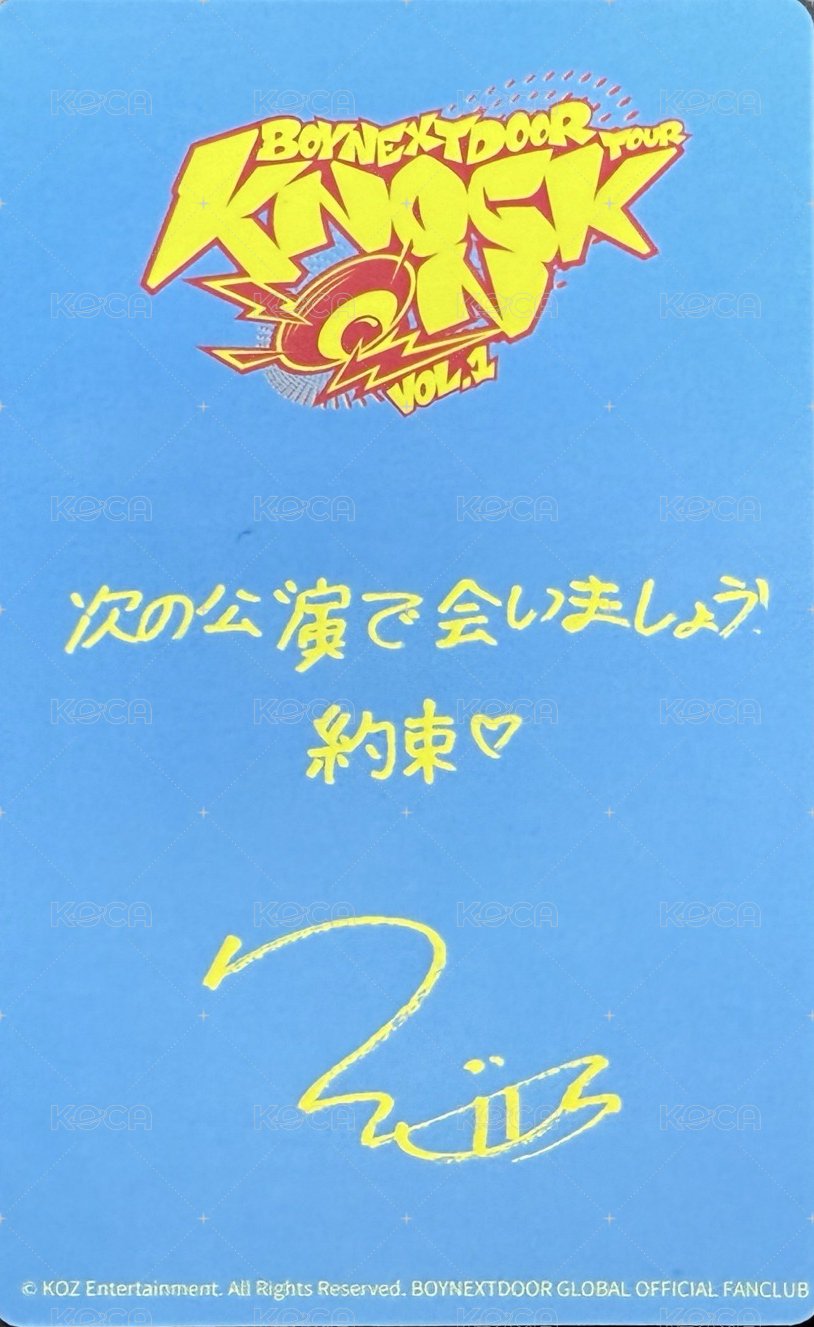 BOYNEXTDOOR TOUR
KNOCK
ON
VOL.1
次の公演で会いましょう
約束♡
© KOZ Entertainment. All Rights Reserved. BOYNEXTDOOR GLOBAL OFFICIAL FANCLUB
KOCA